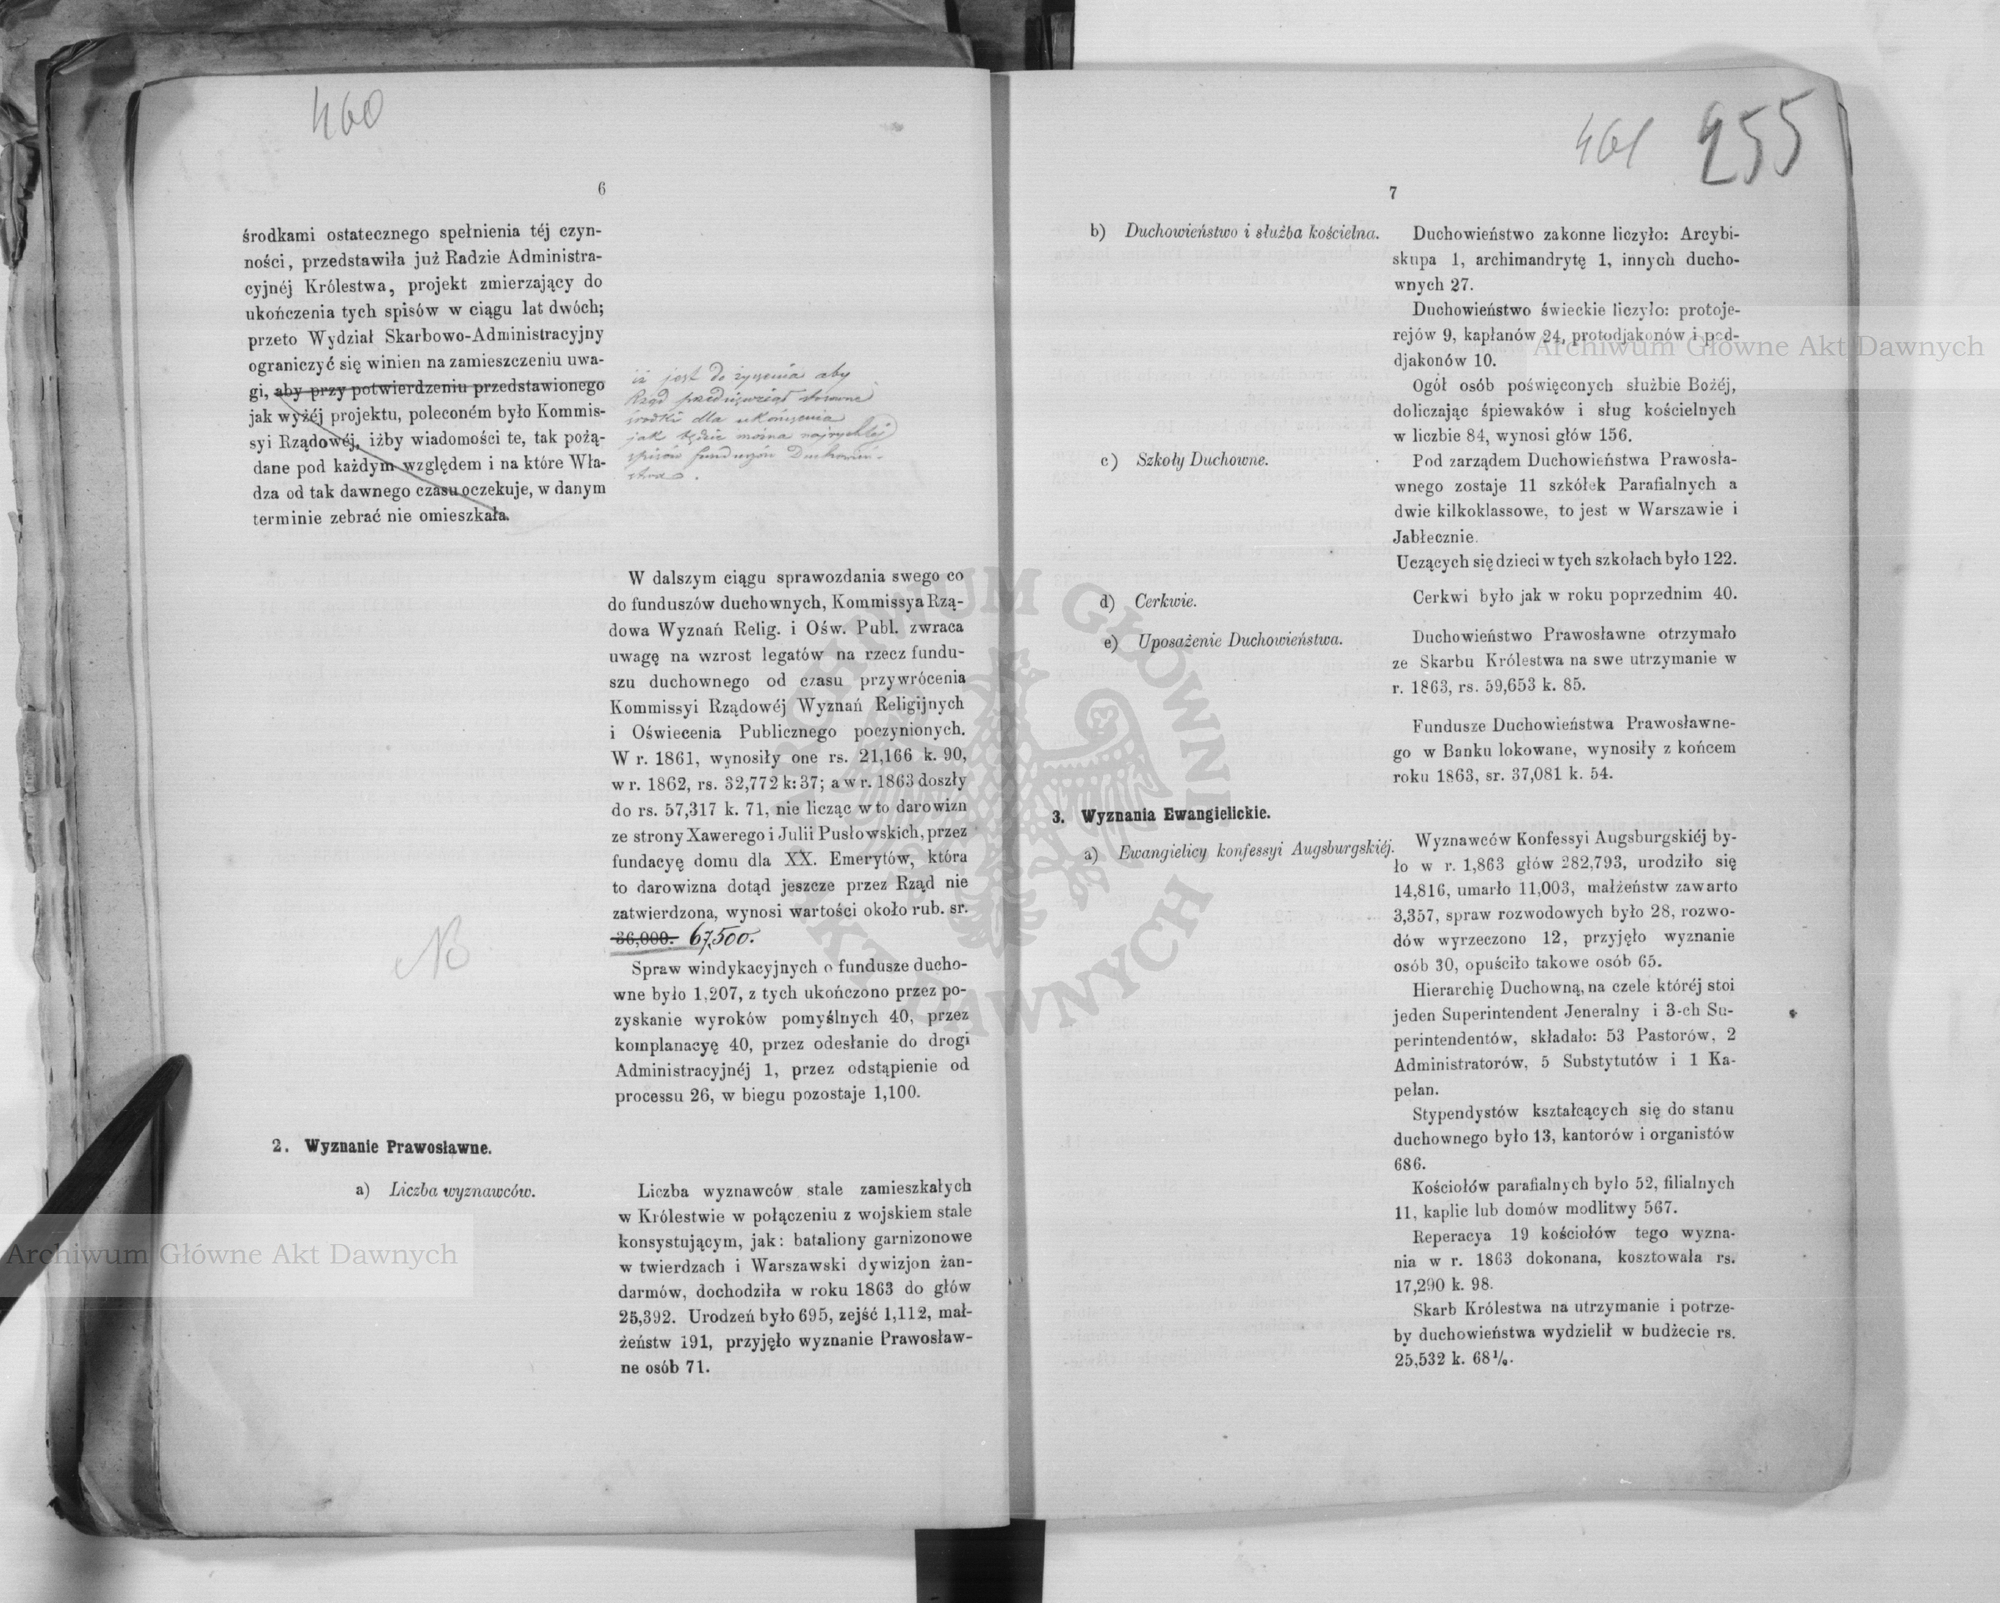 460
6
środkami ostatecznego spełnienia téj czyn-
ności, przedstawiła już Radzie Administra-
cyjnéj Królestwa, projekt zmierzający do
ukończenia tych spisów w ciągu lat dwóch;
przeto Wydział Skarbowo-Administracyjny
ograniczyć się winien na zamieszczeniu uwa-
gi, aby przy potwierdzeniu przedstawionego
jak wyżéj projektu, poleconém było Kommis-
syi Rządowéj, iżby wiadomości te, tak pożą-
dane pod każdym względem i na które Wła-
dza od tak dawnego czasu oczekuje, w danym
terminie zebrać nie omieszkała.
iż jest do życzenia aby
Rząd przedsięwziął stosowne
środki dla ukończenia
jak będzie można najrychlej
spisów funduszów Duchowień-
stwa.
W dalszym ciągu sprawozdania swego co
do funduszów duchownych, Kommissya Rzą-
dowa Wyznań Relig. i Ośw. Publ. zwraca
uwagę na wzrost legatów na rzecz fundu-
szu duchownego od czasu przywrócenia
Kommissyi Rządowéj Wyznań Religijnych
i Oświecenia Publicznego poczynionych.
W r. 1861, wynosiły one rs. 21,166 k. 90,
w r. 1862, rs. 32,772 k: 37; a w r. 1863 doszły
do rs. 57,317 k. 71, nie licząc w to darowizn
ze strony Xawerego i Julii Pusłowskich, przez
fundacyę domu dla XX. Emerytów, która
to darowizna dotąd jeszcze przez Rząd nie
zatwierdzona, wynosi wartości około rub. sr.
36,000. 67,500.
Spraw windykacyjnych o fundusze ducho-
wne było 1,207, z tych ukończono przez po-
zyskanie wyroków pomyślnych 40, przez
komplanacyę 40, przez odesłanie do drogi
Administracyjnéj 1, przez odstąpienie od
processu 26, w biegu pozostaje 1,100.
2. Wyznanie Prawosławne.
a) Liczba wyznawców.
Liczba wyznawców stale zamieszkałych
w Królestwie w połączeniu z wojskiem stale
konsystującym, jak: bataliony garnizonowe
w twierdzach i Warszawski dywizjon żan-
darmów, dochodziła w roku 1863 do głów
25,392. Urodzeń było 695, zejść 1,112, mał-
żeństw 191, przyjęło wyznanie Prawosław-
ne osób 71.
461 255
7
b) Duchowieństwo i służba kościelna.
Duchowieństwo zakonne liczyło: Arcybi-
skupa 1, archimandrytę 1, innych ducho-
wnych 27.
Duchowieństwo świeckie liczyło: protoje-
rejów 9, kapłanów 24, protodjakonów i pod-
djakonów 10.
Ogół osób poświęconych służbie Bożéj,
doliczając śpiewaków i sług kościelnych
w liczbie 84, wynosi głów 156.
c) Szkoły Duchowne.
Pod zarządem Duchowieństwa Prawosła-
wnego zostaje 11 szkółek Parafialnych a
dwie kilkoklassowe, to jest w Warszawie i
Jabłecznie.
Uczących się dzieci w tych szkołach było 122.
d) Cerkwie.
Cerkwi było jak w roku poprzednim 40.
e) Uposażenie Duchowieństwa.
Duchowieństwo Prawosławne otrzymało
ze Skarbu Królestwa na swe utrzymanie w
r. 1863, rs. 59,653 k. 85.
Fundusze Duchowieństwa Prawosławne-
go w Banku lokowane, wynosiły z końcem
roku 1863, sr. 37,081 k. 54.
3. Wyznania Ewangielickie.
a) Ewangielicy konfessyi Augsburgskiéj.
Wyznawców Konfessyi Augsburgskiéj by-
ło w r. 1,863 głów 282,793, urodziło się
14,816, umarło 11,003, małżeństw zawarto
3,357, spraw rozwodowych było 28, rozwo-
dów wyrzeczono 12, przyjęło wyznanie
osób 30, opuściło takowe osób 65.
Hierarchię Duchowną, na czele któréj stoi
jeden Superintendent Jeneralny i 3-ch Su-
perintendentów, składało: 53 Pastorów, 2
Administratorów, 5 Substytutów i 1 Ka-
pelan.
Stypendystów kształcących się do stanu
duchownego było 13, kantorów i organistów
686.
Kościołów parafialnych było 52, filialnych
11, kaplic lub domów modlitwy 567.
Reperacya 19 kościołów tego wyzna-
nia w r. 1863 dokonana, kosztowała rs.
17,290 k. 98.
Skarb Królestwa na utrzymanie i potrze-
by duchowieństwa wydzielił w budżecie rs.
25,532 k. 68
Archiwum Główne Akt Dawnych
Archiwum Główne Akt Dawnych
ARCHIWUM GŁÓWNE AKT DAWNYCH